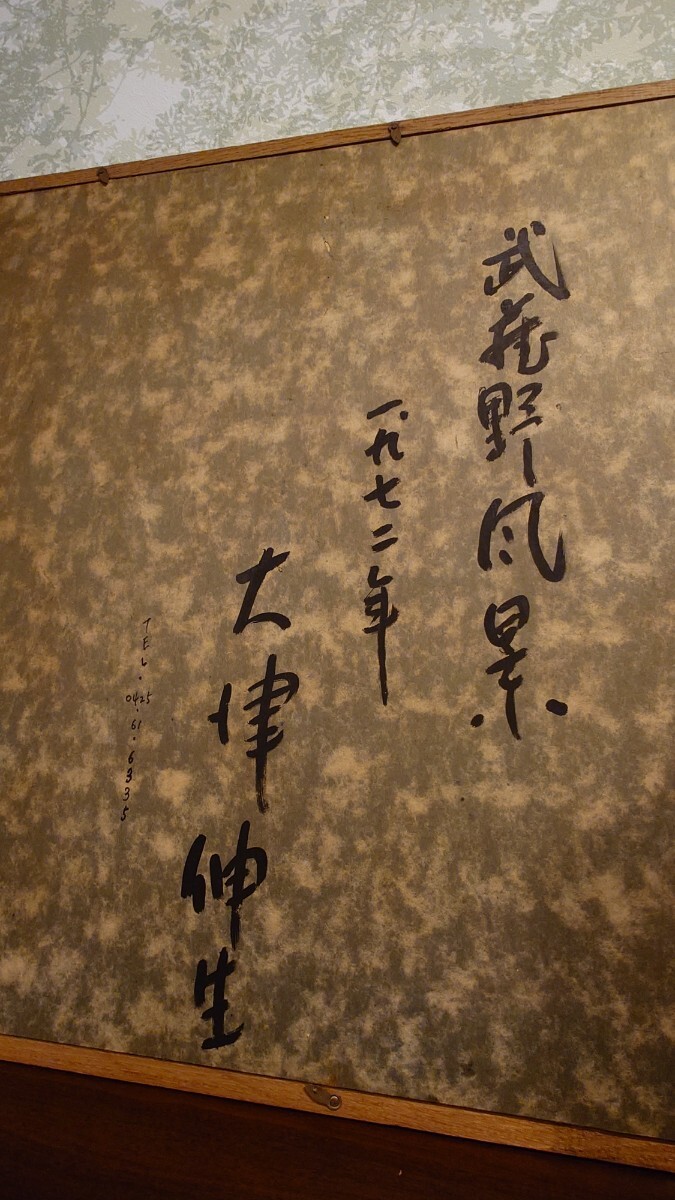 武蔵野風景
一九七二年
大津伸生
TEL.0425.61.6335